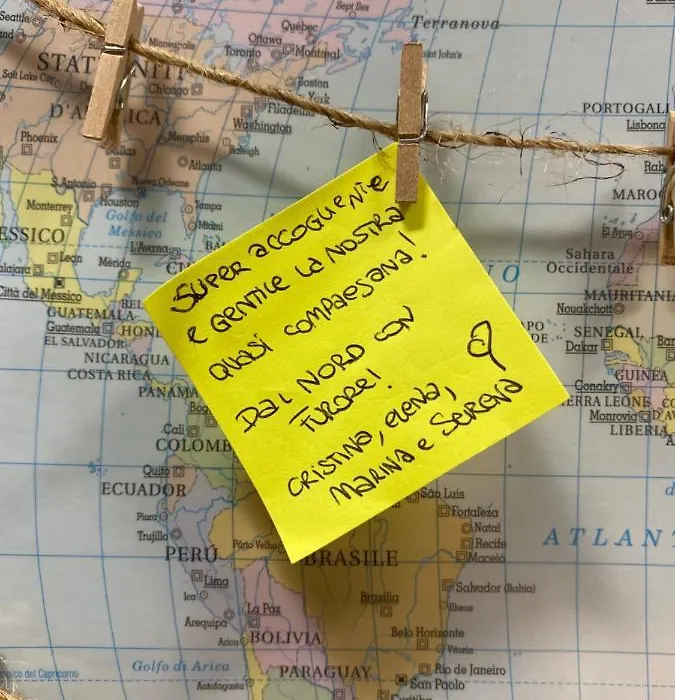 Seattle
Minneapolis
Québec
Sept Îles
Terranova
Ottawa
Montréal
Toronto
Salt Lake City
STATI UNITI
Chicago
Boston
York
Filadelfia
D'AMERICA
Washington
PORTOGALLO
Lisbona
Phoenix
Memphis
Raleigh
Dallas
Atlanta
S.Antonio
New Orleans
Houston
Tampa
Monterrey
Golfo del
Messico
Miami
L'Avana
MESSICO
León
Mérida
Città del Messico
GUATEMALA
Guatemala
EL SALVADOR
NICARAGUA
COSTA RICA
PANAMA
Cali
COLOMB
Quito
ECUADOR
Piura
Trujillo
PERÚ
Lima
Ica
Arequipa
Arica
Golfo di Arica
Antofagasta
SUPER ACCOGLIENTE
E GENTILE LA NOSTRA
QUASI COMPAESANA!
DAL NORD CON
FURORE!
CRISTINA, ELENA,
MARINA E SERENA
El Aiun
Sahara
Occidentale
MAURITANIA
Nouakchott
SENEGAL
Dakar
GUINEA
Conakry
SIERRA LEONE
Monrovia
LIBERIA
ATLANT
São Luís
Fortaleza
Natal
Recife
Maceió
Pôrto Velho
BRASILE
Salvador (Bahia)
Brasília
Ilheus
La Paz
BOLIVIA
Belo Horizonte
Vitoria
PARAGUAY
Rio de Janeiro
San Paolo
Curitiba